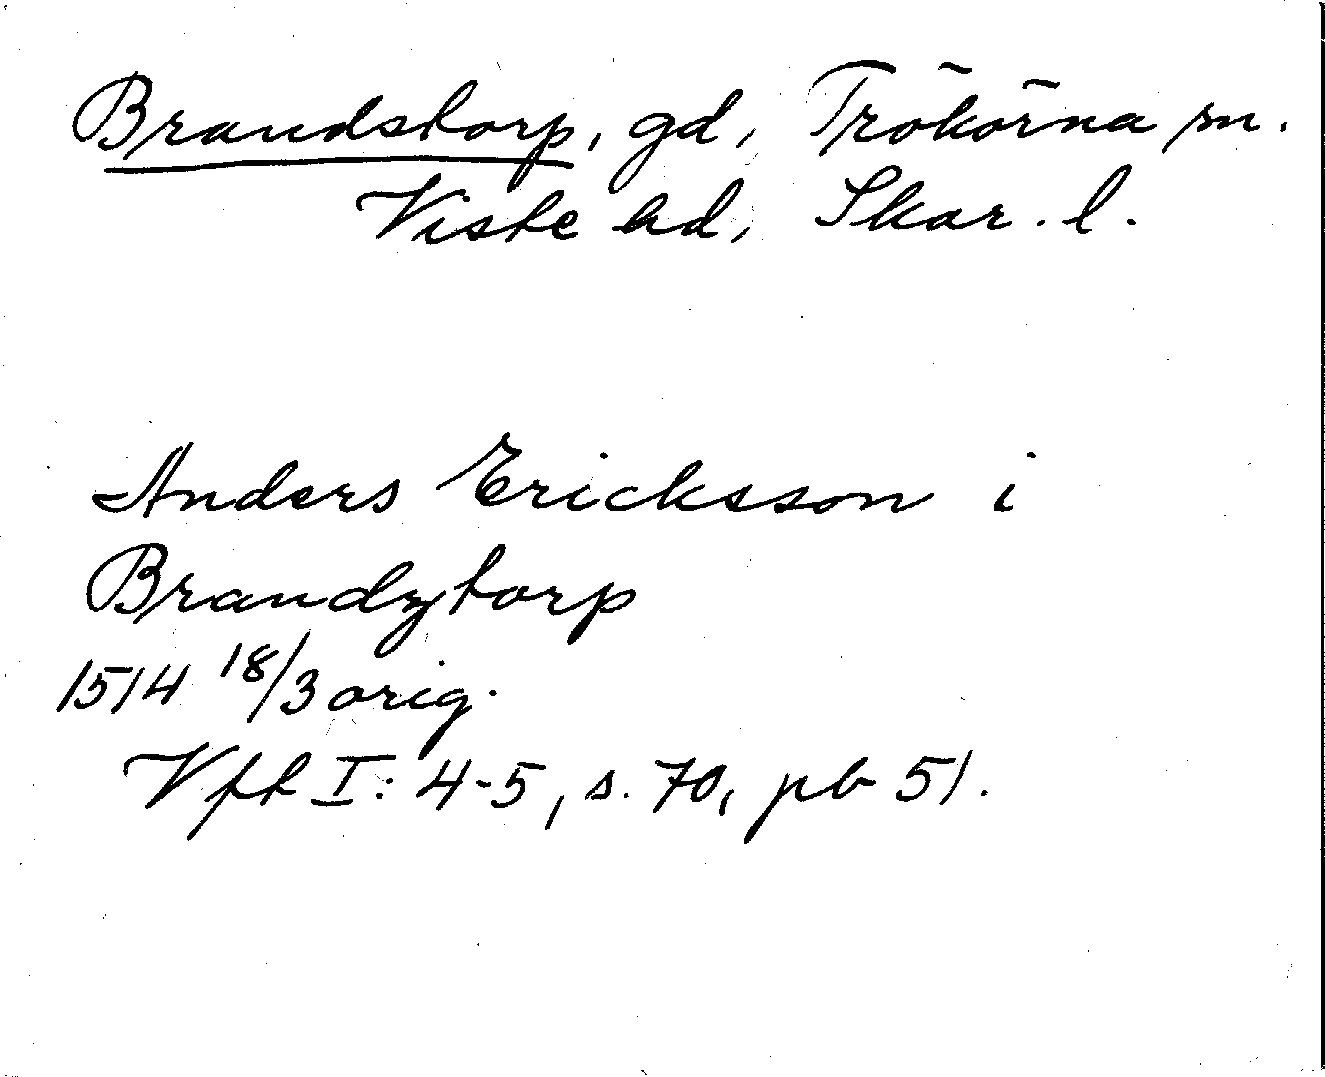 Brandstorp, gd, Trökörna sn.
Viste hd, Skar. l.
Anders Ericksson i
Brandztorp
1514 18/3 orig.
Vft I: 4-5, s. 70, pb 51.